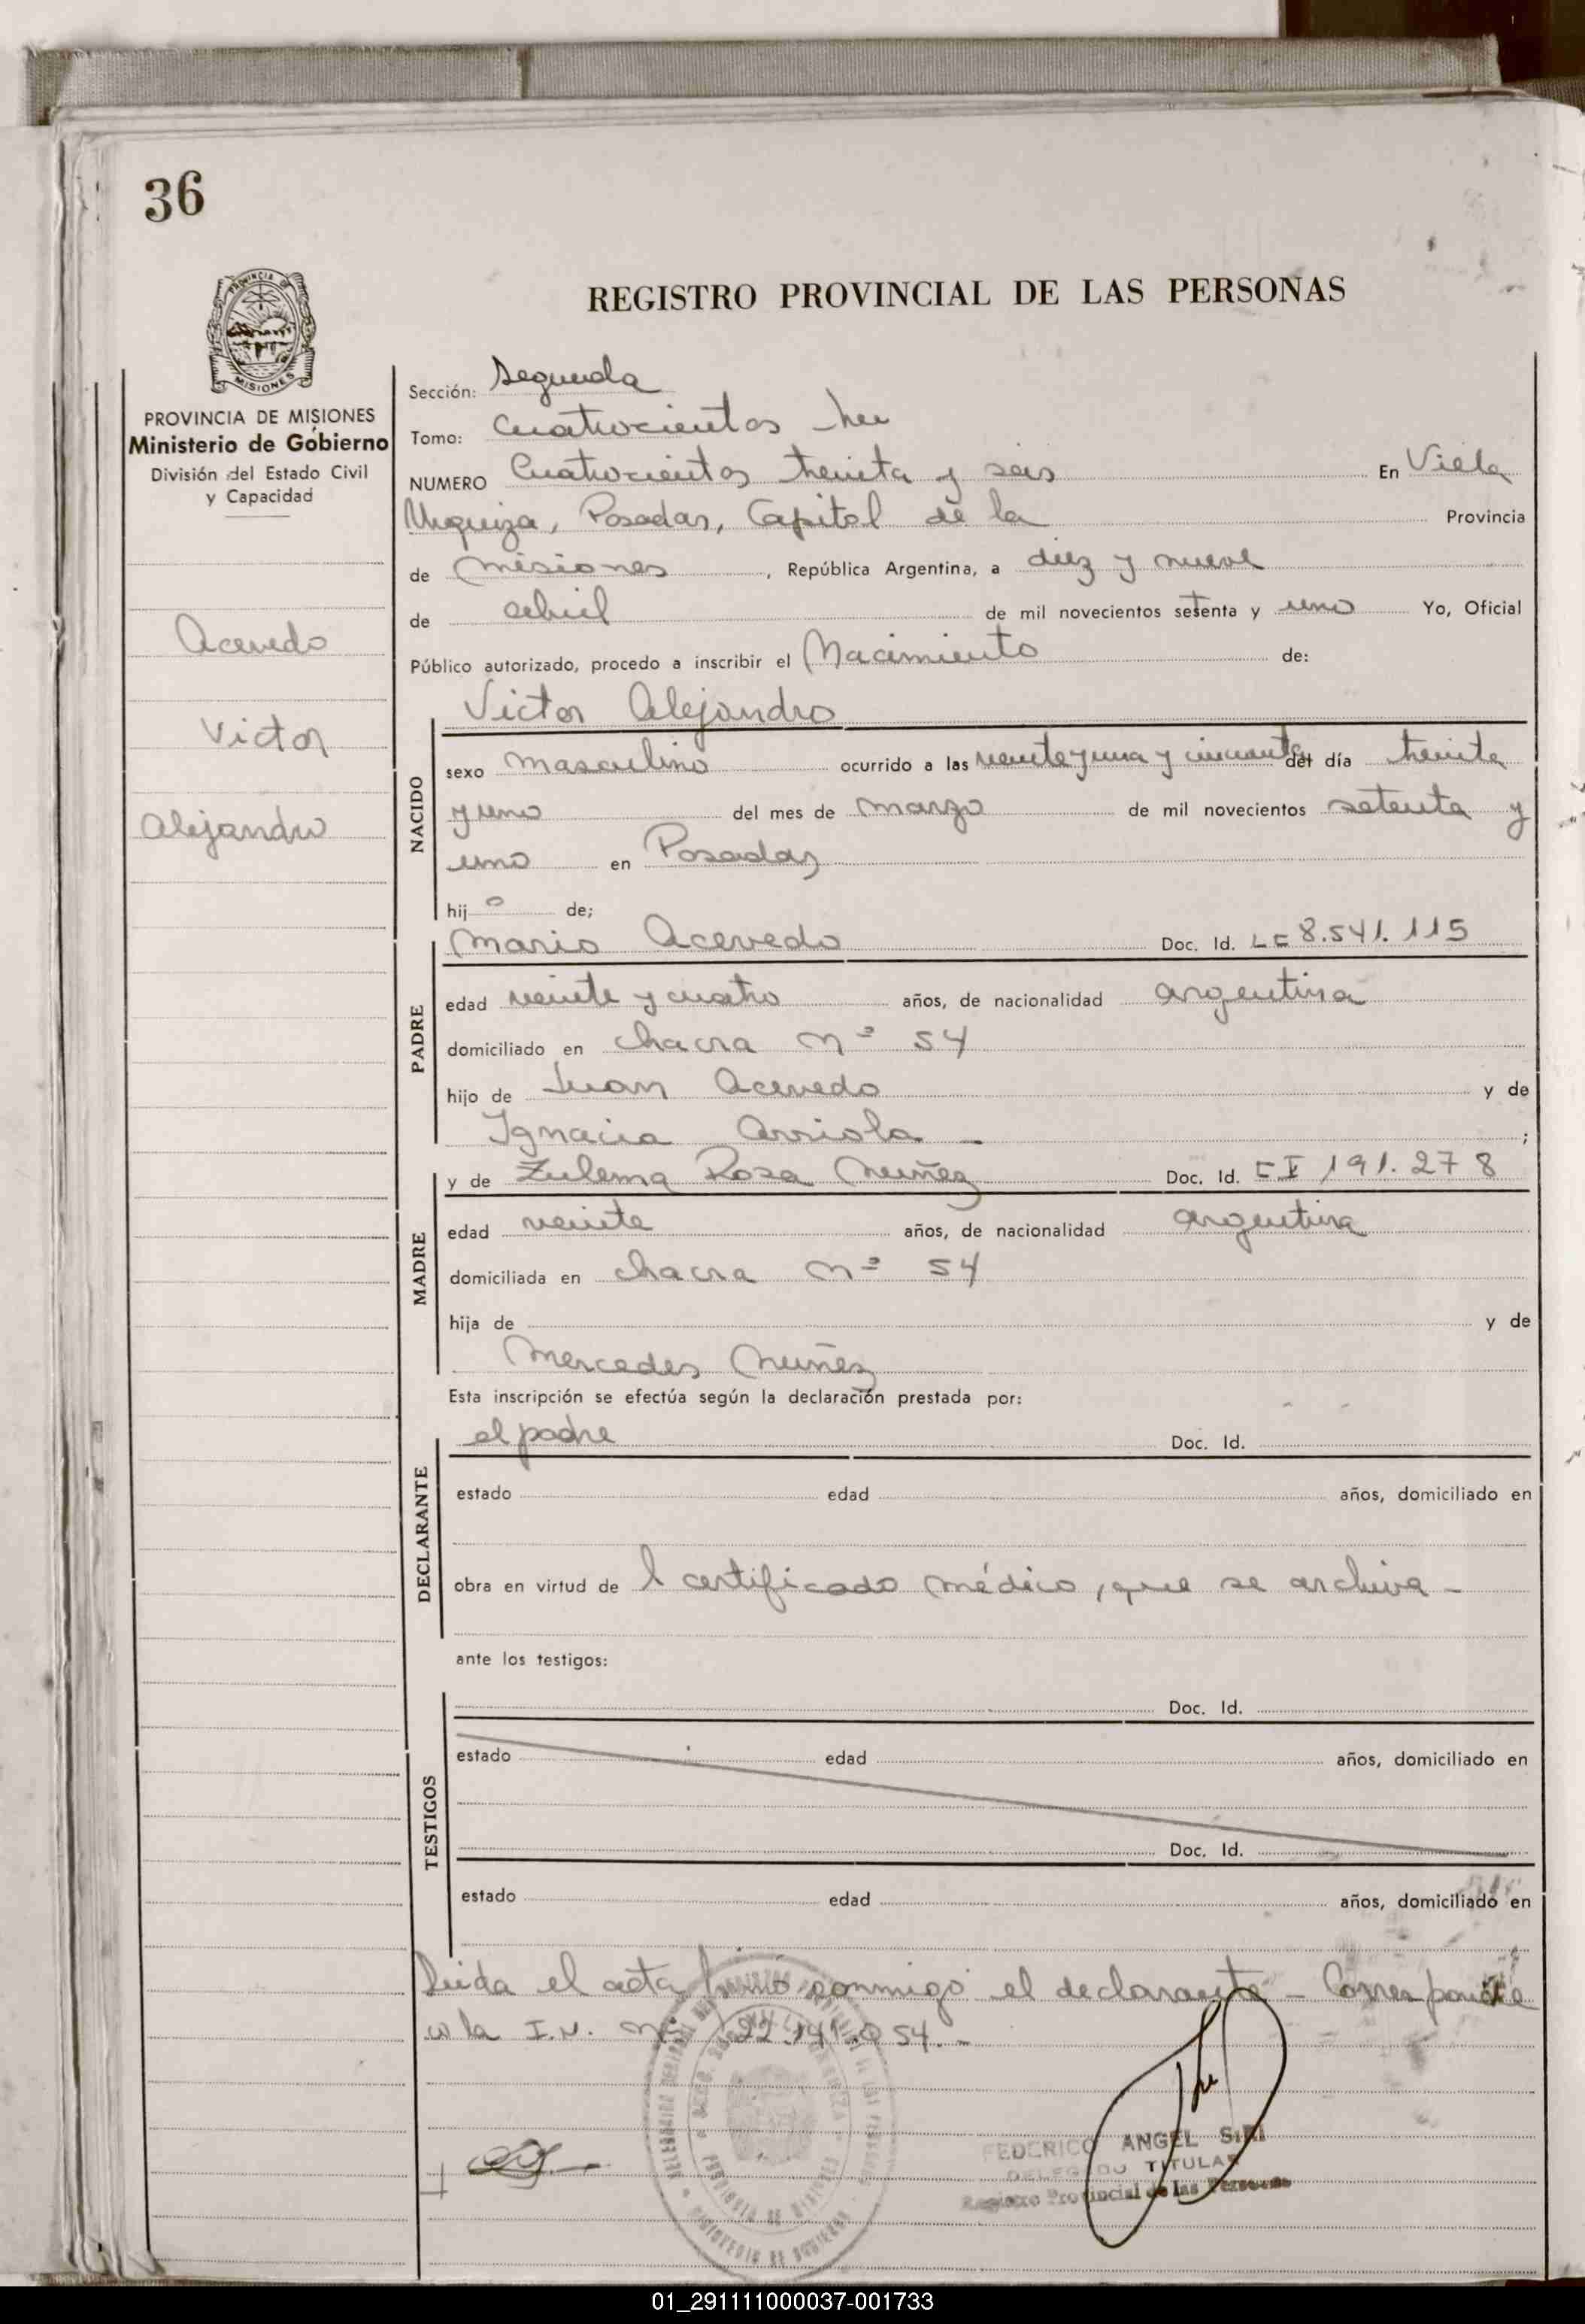 36
PROVINCIA DE MISIONES
PROVINCIA DE MISIONES
Ministerio de Gobierno
División del Estado Civil
y Capacidad
Acevedo
Victor
Alejandro
REGISTRO PROVINCIAL DE LAS PERSONAS
Sección: Segunda
Tomo: Cuatrocientos
NUMERO Cuatrocientos treinta y seis En Villa
Urquiza, Posadas, Capital de la Provincia
de Misiones, República Argentina, a diez y nueve
de abril de mil novecientos setenta y uno Yo, Oficial
Público autorizado, procedo a inscribir el Nacimiento de:
Victor Alejandro
NACIDO
sexo masculino ocurrido a las veinte y una y cincuenta del día treinta
y uno del mes de marzo de mil novecientos setenta y
uno en Posadas
hij o de;
PADRE
Mario Acevedo Doc. Id. LE 8.541.115
edad veinte y cuatro años, de nacionalidad argentina
domiciliado en chacra nº 54
hijo de Juan Acevedo y de
Ignacia Arriola - ;
MADRE
y de Zulema Rosa Nuñez Doc. Id. CI 191.278
edad veinte años, de nacionalidad argentina
domiciliada en chacra nº 54
hija de y de
Mercedes Nuñez
Esta inscripción se efectúa según la declaración prestada por:
DECLARANTE
el padre Doc. Id.
estado edad años, domiciliado en
obra en virtud de l certificado médico, que se archiva -
ante los testigos:
TESTIGOS
Doc. Id.
estado edad años, domiciliado en
Doc. Id.
estado edad años, domiciliado en
Leida el acta firmó conmigo el declarante - Corresponde
la I.N. Nº 22.141.054. -
FEDERICO ANGEL SIRI
DELEGADO TITULAR
Registro Provincial de las Personas
01_291111000037-001733